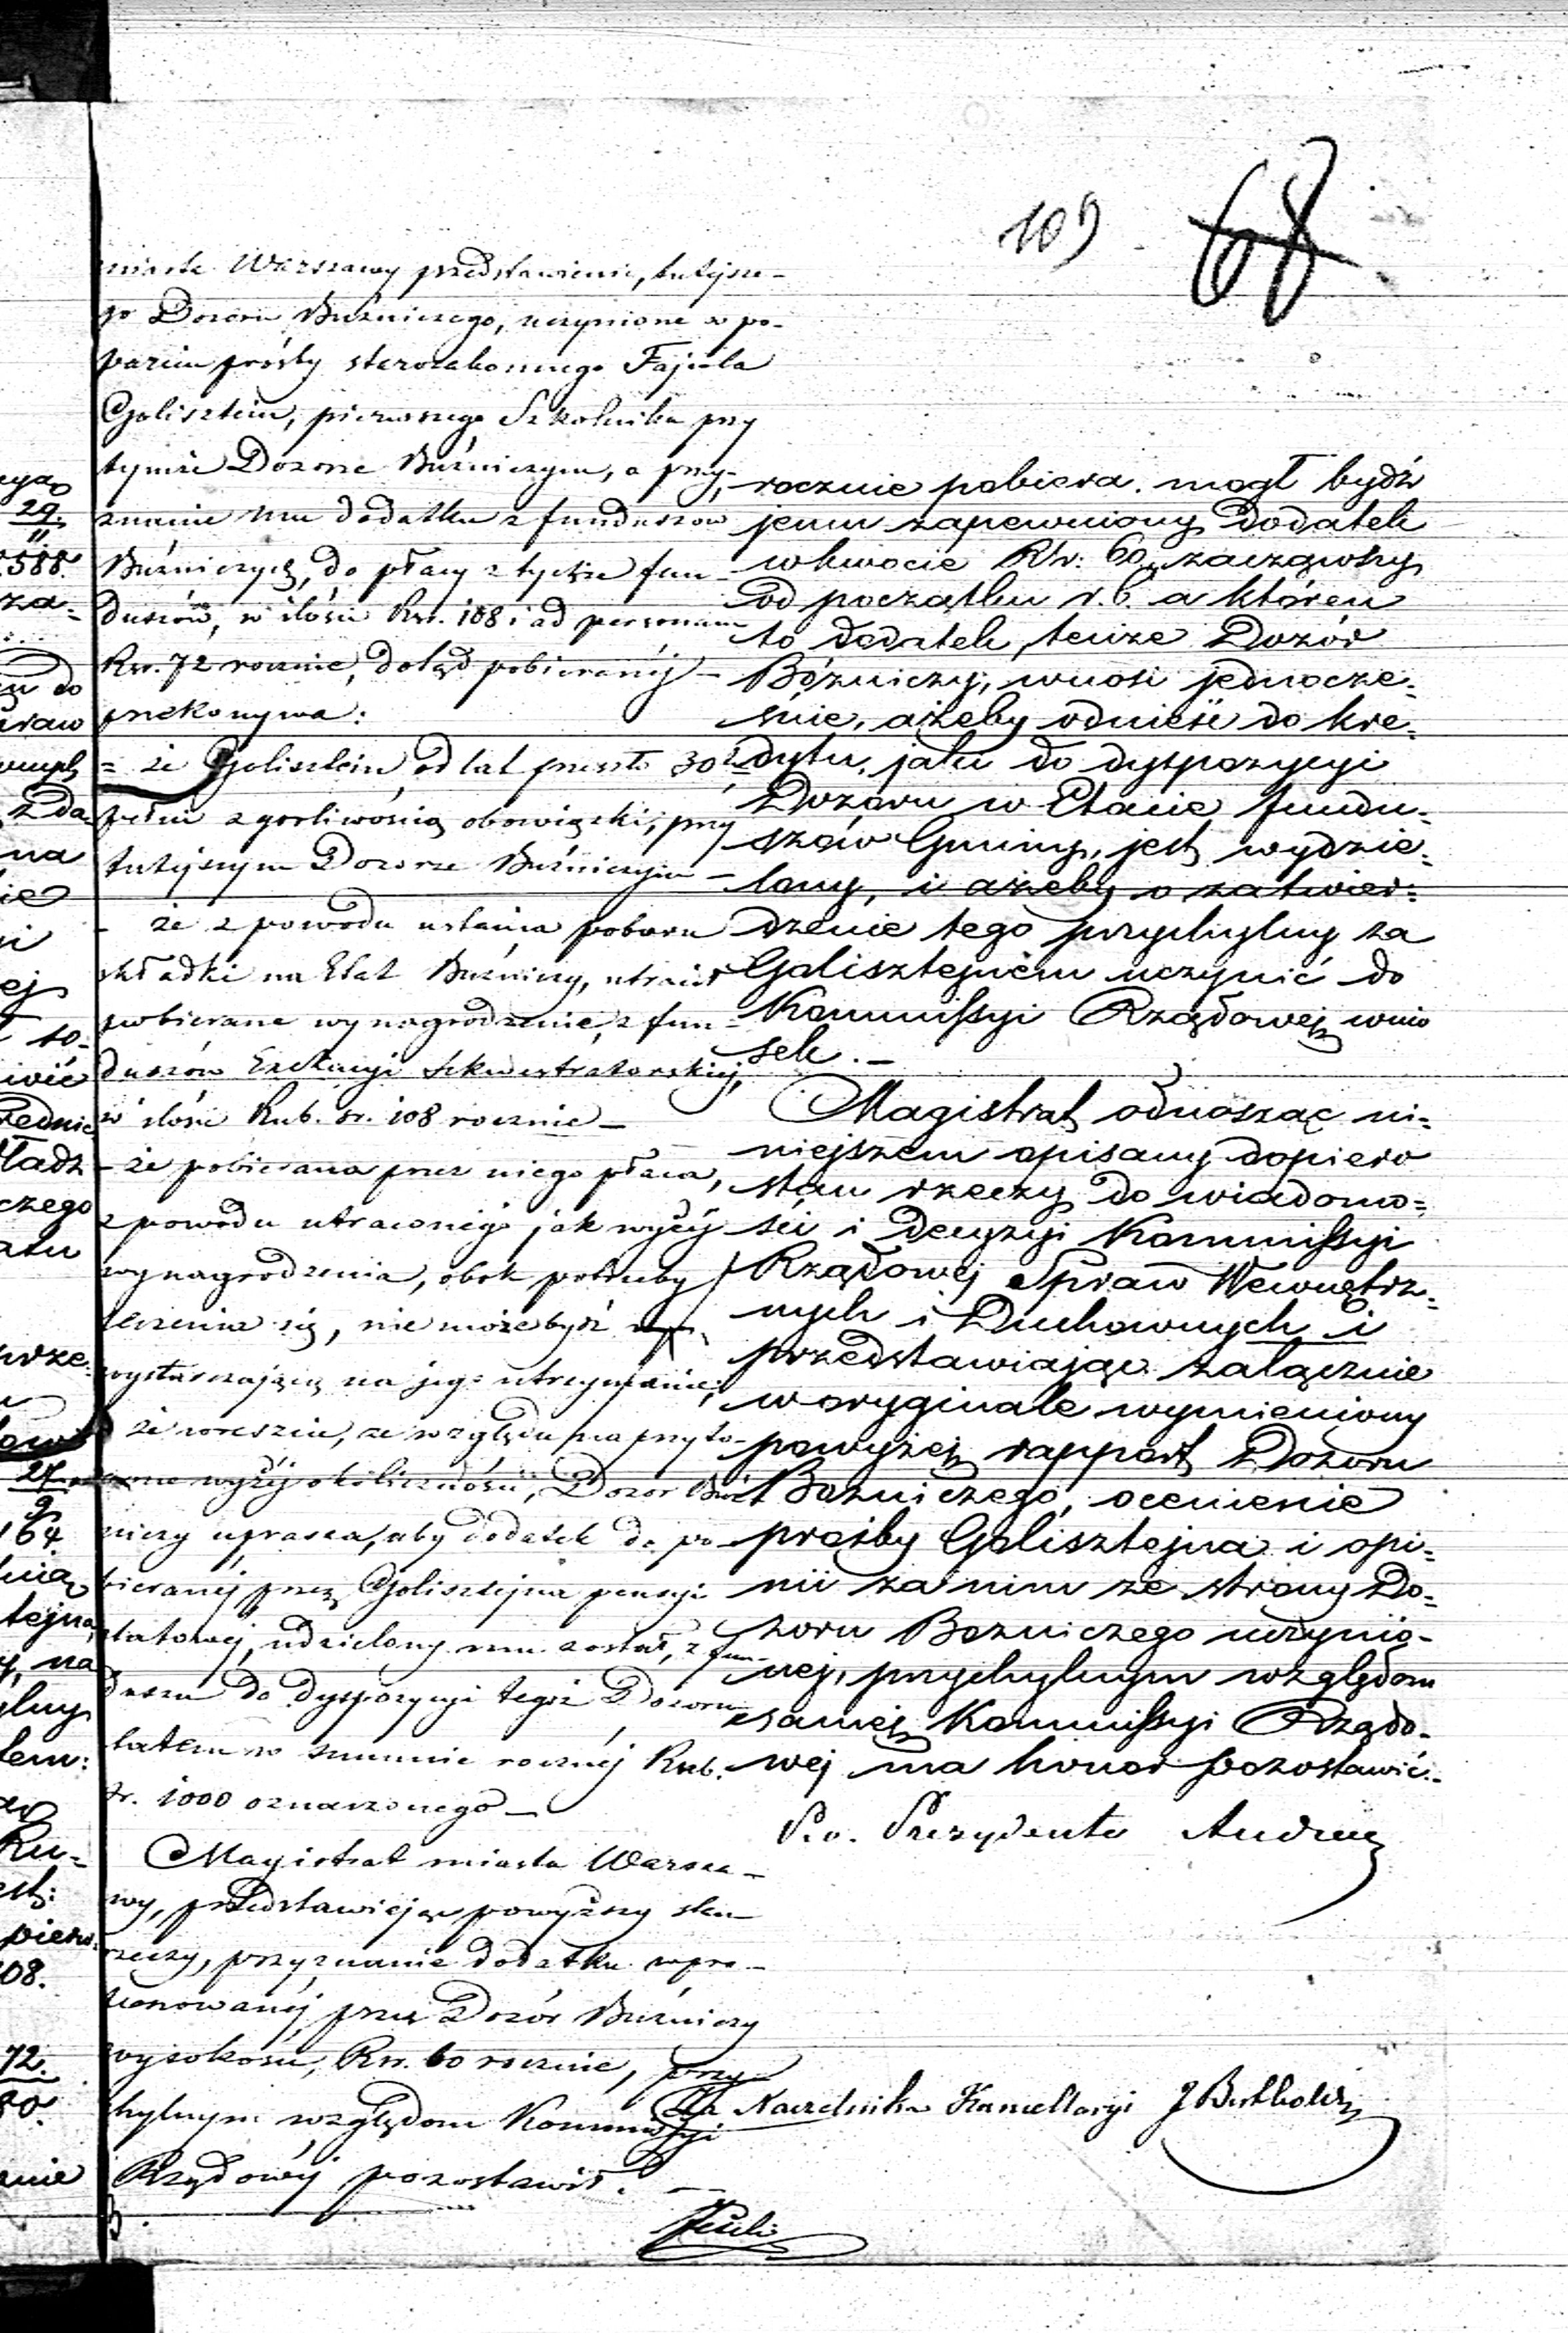 109 68
miasta Warszawy przedstawienie, tutejsze-
go Dozoru Buźniczego, uczynione w po-
parciu prośby starozakonnego Fajwla
Golisztein, pierwszego Szkolnika przy
tymże Dozorze Buźniczym, o przy-
znanie mu dodatku z funduszów
Buźniczych, do płacy z tychże fun-
duszów, w ilości Rsr. 108 i ad personam
Rsr. 72 rocznie, dotąd pobieranéj –
przekonywa:
= że Golisztein od lat przeszło 30
pełni z gorliwością obowiązki, przy
tutéjszym Dozorze Buźniczym –
– że z powodu ustania poboru
składki na Etat Buźniczy, utracił
pobierane wynagrodzenie z fun-
duszów Exekucyi Sekwestratorskiéj,
w ilości Rub. sr. 108 rocznie –
– że pobierana przez niego płaca,
z powodu utraconego jak wyżéj
wynagrodzenia, obok potrzeby
leczenia się, nie może bydź
wystarczającą na jego utrzymanie;
że wreszcie, ze względu na przyto-
czone wyżéj okoliczności, Dozór Buź-
niczy uprasza, aby dodatek do po-
bieranéj przez Golisztejna pensyi
etatowéj, udzielony mu został, z fun-
duszu do dyspozycyi tegoż Dozoru
tatem w summie rocznéj Rub.
sr. 1000 oznaczonego –
Magistrat miasta Warsza-
wy, przedstawiając powyższy stan
rzeczy, przyznanie dodatku w pro-
ponowanéj przez Dozór Buźniczy
wysokości, Rsr. 60 rocznie, przy-
chylnym względom Kommissyi
Rządowéj pozostawił. –
rocznie pobiera. mogł bydź
jemu zapewniony dodatek
w kwocie Rsr: 60, zacząwszy
od początku r. b. a któren
to dodatek, tenże Dozór
Bóżniczy, wnosi jednocze-
śnie, ażeby odnieść do kre-
dytu, jaki do dyspozycyi
Dozoru w Etacie fundu-
szów Gminy, jest wydzie-
lony, i ażeby o zatwier-
dzenie tego przychylny za
Galisztejnem uczynić do
Kommissyi Rządowej wnio
sek. –
Magistrat odnosząc ni-
niejszem opisany dopiero
stan rzeczy do wiadomo-
ści i decyzyi Kommissyi
Rządowej Spraw Wewnętrz-
nych i Duchownych i
przedstawiając załącznie
w oryginale wymieniony
powyżej rapport Dozoru
Bożniczego, ocenienie
prośby Galisztejna i opi-
nii za nim ze strony Do-
zoru Bożniczego uczynio-
nej, przychylnym względom
samej Kommissyi Rządo-
wej ma honor pozostawić. –
P. o. Prezydenta
Za Naczelnika Kancellaryi J Berthold